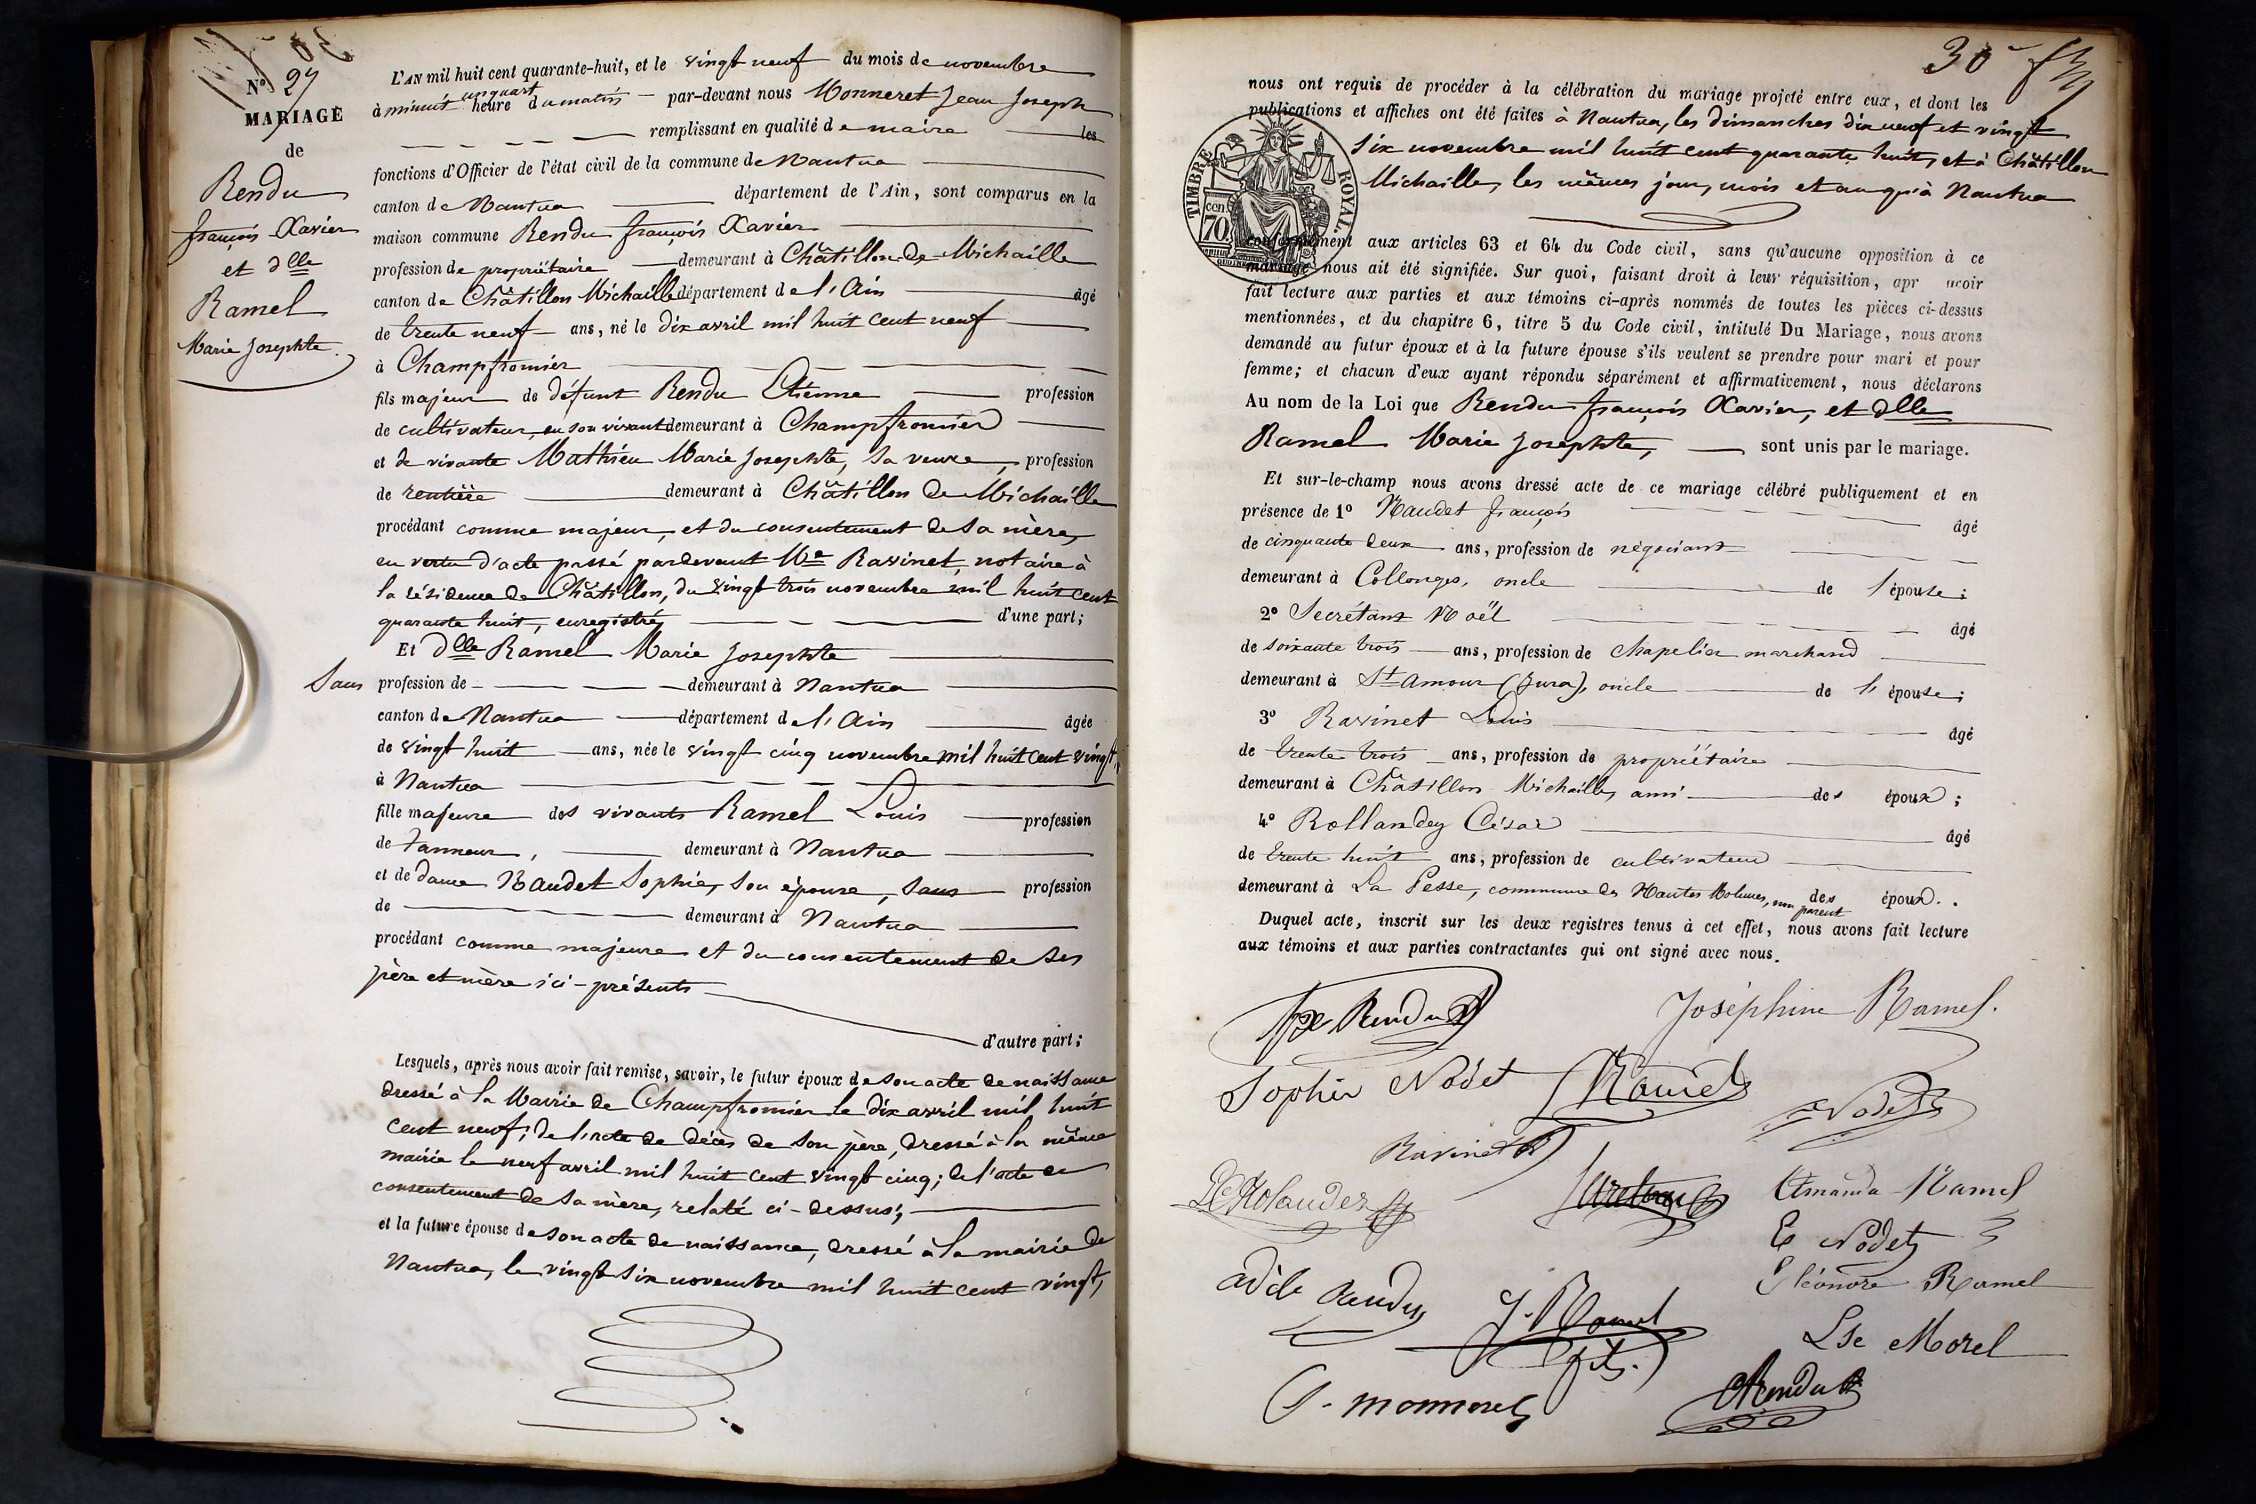 N° 27
MARIAGE
de
Rendu
françois Xavier
et dlle
Ramel
Marie Josephte
L'AN mil huit cent quarante-huit, et le vingt neuf du mois de novembre
à minuit un quart heure du matin par-devant nous Monneret Jean Joseph
remplissant en qualité de maire les
fonctions d'Officier de l'état civil de la commune de Nantua
canton de Nantua département de l'Ain, sont comparus en la
maison commune Rendu françois Xavier
profession de propriétaire demeurant à Châtillon-de-Michaille
canton de Châtillon Michaille département de l'Ain âgé
de trente neuf ans, né le dix avril mil huit cent neuf
à Champfromier
fils majeur de défunt Rendu Etienne profession
de cultivateur, en son vivant demeurant à Champfromier
et de vivante Mathieu Marie Josephte, sa veuve, profession
de rentière demeurant à Châtillon de Michaille
procédant comme majeur, et du consentement de sa mère,
en vertu d'acte passé pardevant Me Ravinet, notaire à
la résidence de Châtillon, du vingt trois novembre mil huit cent
quarante huit, enregistré d'une part;
Et dlle Ramel Marie Josephte
Sans profession de demeurant à Nantua
canton de Nantua département de l'Ain âgée
de vingt huit ans, née le vingt cinq novembre mil huit cent vingt,
à Nantua
fille majeure des vivants Ramel Louis profession
de tanneur, demeurant à Nantua
et de dame Naudet Sophie, son épouse, sans profession
de demeurant à Nantua
procédant comme majeure et du consentement de ses
père et mère ici-présents
d'autre part;
Lesquels, après nous avoir fait remise, savoir, le futur époux de son acte de naissance
dressé à la Mairie de Champfromier le dix avril mil huit
cent neuf; de l'acte de décès de son père, dressé à la même
mairie le neuf avril mil huit cent vingt cinq; de l'acte de
consentement de sa mère, relaté ci-dessus;
et la future épouse de son acte de naissance, dressé à la mairie de
Nantua, le vingt six novembre mil huit cent vingt,
30
nous ont requis de procéder à la célébration du mariage projeté entre eux, et dont les
publications et affiches ont été faites à Nantua, les dimanches dix neuf et vingt
six novembre mil huit cent quarante huit, et à Châtillon
Michaille, les mêmes jour, mois et an qu'à Nantua
TIMBRE ROYAL.
70 cen.
conformément aux articles 63 et 64 du Code civil, sans qu'aucune opposition à ce
mariage nous ait été signifiée. Sur quoi, faisant droit à leur réquisition, apr avoir
fait lecture aux parties et aux témoins ci-après nommés de toutes les pièces ci-dessus
mentionnées, et du chapitre 6, titre 5 du Code civil, intitulé Du Mariage, nous avons
demandé au futur époux et à la future épouse s'ils veulent se prendre pour mari et pour
femme; et chacun d'eux ayant répondu séparément et affirmativement, nous déclarons
Au nom de la Loi que Rendu françois Xavier, et dlle
Ramel Marie Josephte, sont unis par le mariage.
Et sur-le-champ nous avons dressé acte de ce mariage célébré publiquement et en
présence de 1° Naudet françois âgé
de cinquante deux ans, profession de négociant
demeurant à Collonges, oncle de l'épouse;
2° Secrétant Noël âgé
de soixante trois ans, profession de chapelier marchand
demeurant à St Amour (Jura), oncle de l'épouse;
3° Ravinet Louis âgé
de trente trois ans, profession de propriétaire
demeurant à Châtillon Michaille, ami des époux;
4° Rollandez César âgé
de trente huit ans, profession de cultivateur
demeurant à La Pesse, commune des Hautes Molunes, non parent des époux.
Duquel acte, inscrit sur les deux registres tenus à cet effet, nous avons fait lecture
aux témoins et aux parties contractantes qui ont signé avec nous.
fxe Rendu Joséphine Ramel.
Sophie Nodet Ramel Nodet
Ravinet
Rolandez Amanda Ramel
E Nodet
Eléonore Ramel
adèle Rendu J. Ramel fils.
Lse Morel
J. monneret Rendu